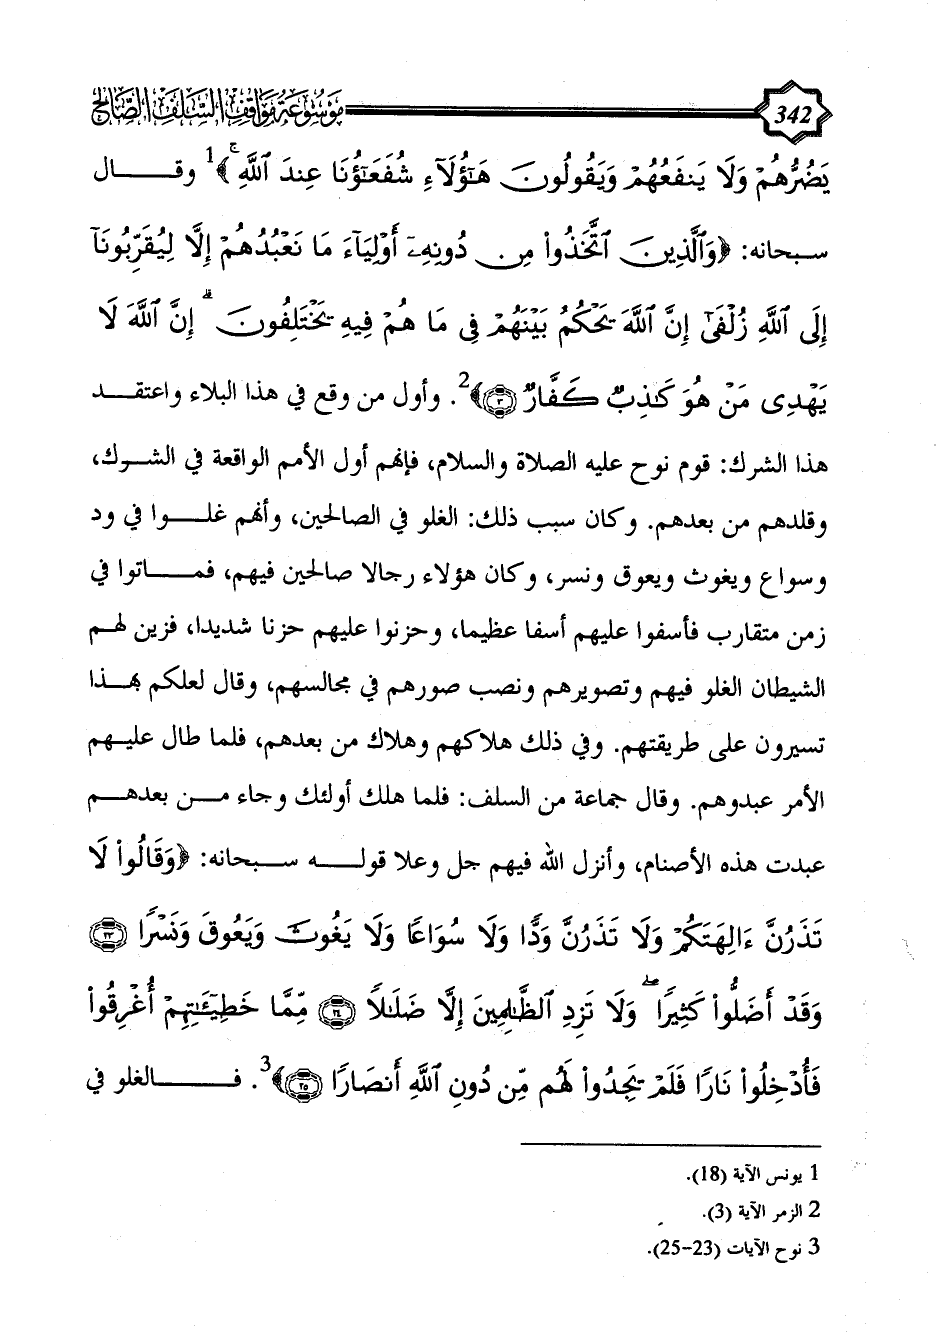 342 موسوعة مواقف السلف الصالح
يَضُرُّهُمْ وَلَا يَنفَعُهُمْ وَيَقُولُونَ هَٰٓؤُلَآءِ شُفَعَٰٓؤُنَا عِندَ ٱللَّهِۚ﴾1 وقال
سبحانه: ﴿وَٱلَّذِينَ ٱتَّخَذُوا۟ مِن دُونِهِۦٓ أَوْلِيَآءَ مَا نَعْبُدُهُمْ إِلَّا لِيُقَرِّبُونَآ
إِلَى ٱللَّهِ زُلْفَىٰٓ إِنَّ ٱللَّهَ يَحْكُمُ بَيْنَهُمْ فِى مَا هُمْ فِيهِ يَخْتَلِفُونَۗ إِنَّ ٱللَّهَ لَا
يَهْدِى مَنْ هُوَ كَٰذِبٌ كَفَّارٌ ٣﴾2. وأول من وقع في هذا البلاء واعتقد
هذا الشرك: قوم نوح عليه الصلاة والسلام، فإنهم أول الأمم الواقعة في الشرك،
وقلدهم من بعدهم. وكان سبب ذلك: الغلو في الصالحين، وأنهم غلوا في ود
وسواع ويغوث ويعوق ونسر، وكان هؤلاء رجالا صالحين فيهم، فماتوا في
زمن متقارب فأسفوا عليهم أسفا عظيما، وحزنوا عليهم حزنا شديدا، فزين لهم
الشيطان الغلو فيهم وتصويرهم ونصب صورهم في مجالسهم، وقال لعلكم بهذا
تسيرون على طريقتهم. وفي ذلك هلاكهم وهلاك من بعدهم، فلما طال عليهم
الأمر عبدوهم. وقال جماعة من السلف: فلما هلك أولئك وجاء من بعدهم
عبدت هذه الأصنام، وأنزل الله فيهم جل وعلا قوله سبحانه: ﴿وَقَالُوا۟ لَا
تَذَرُنَّ ءَالِهَتَكُمْ وَلَا تَذَرُنَّ وَدًّا وَلَا سُوَاعًا وَلَا يَغُوثَ وَيَعُوقَ وَنَسْرًا ٢٣
وَقَدْ أَضَلُّوا۟ كَثِيرًاۖ وَلَا تَزِدِ ٱلظَّٰلِمِينَ إِلَّا ضَلَٰلًا ٢٤ مِّمَّا خَطِيٓـَٰٔتِهِمْ أُغْرِقُوا۟
فَأُدْخِلُوا۟ نَارًا فَلَمْ يَجِدُوا۟ لَهُم مِّن دُونِ ٱللَّهِ أَنصَارًا ٢٥﴾3. فالغلو في
1 يونس الآية (18).
2 الزمر الآية (3).
3 نوح الآيات (23-25).